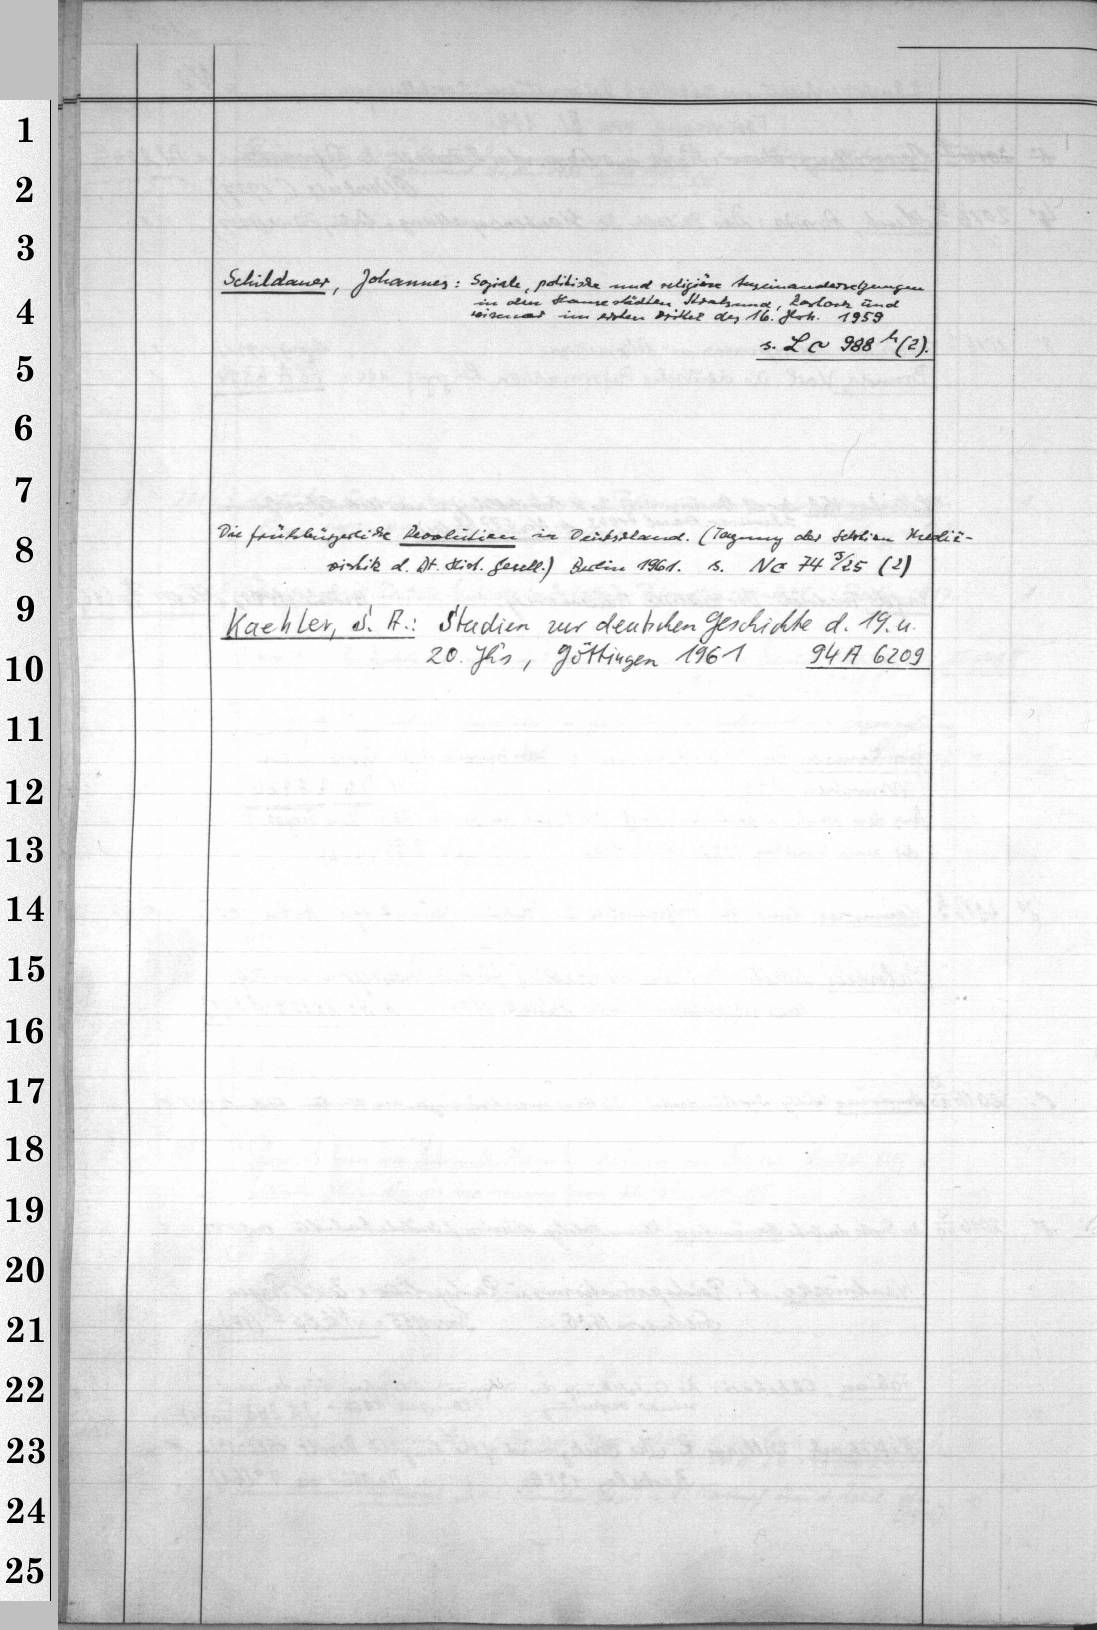 1
2
3
Schildauer, Johannes: Soziale, politische und religiöse Auseinandersetzungen
4
in den Hansestädten Stralsund, Rostock und
Wismar im ersten Drittel des 16. Jhrh. 1959
s. Lc 988 h (2).
5
6
7
Die frühbürgerliche Revolution in Deutschland. (Tagung der Sektion Mediä-
8
vistik d. Dt. Hist. Gesell.) Berlin 1961. s. Nc 74 3/25 (2)
9
Kaehler, S. A.: Studien zur deutschen Geschichte d. 19. u.
10
20. Jh's, Göttingen 1961 94 A 6209
11
12
13
14
15
16
17
18
19
20
21
22
23
24
25